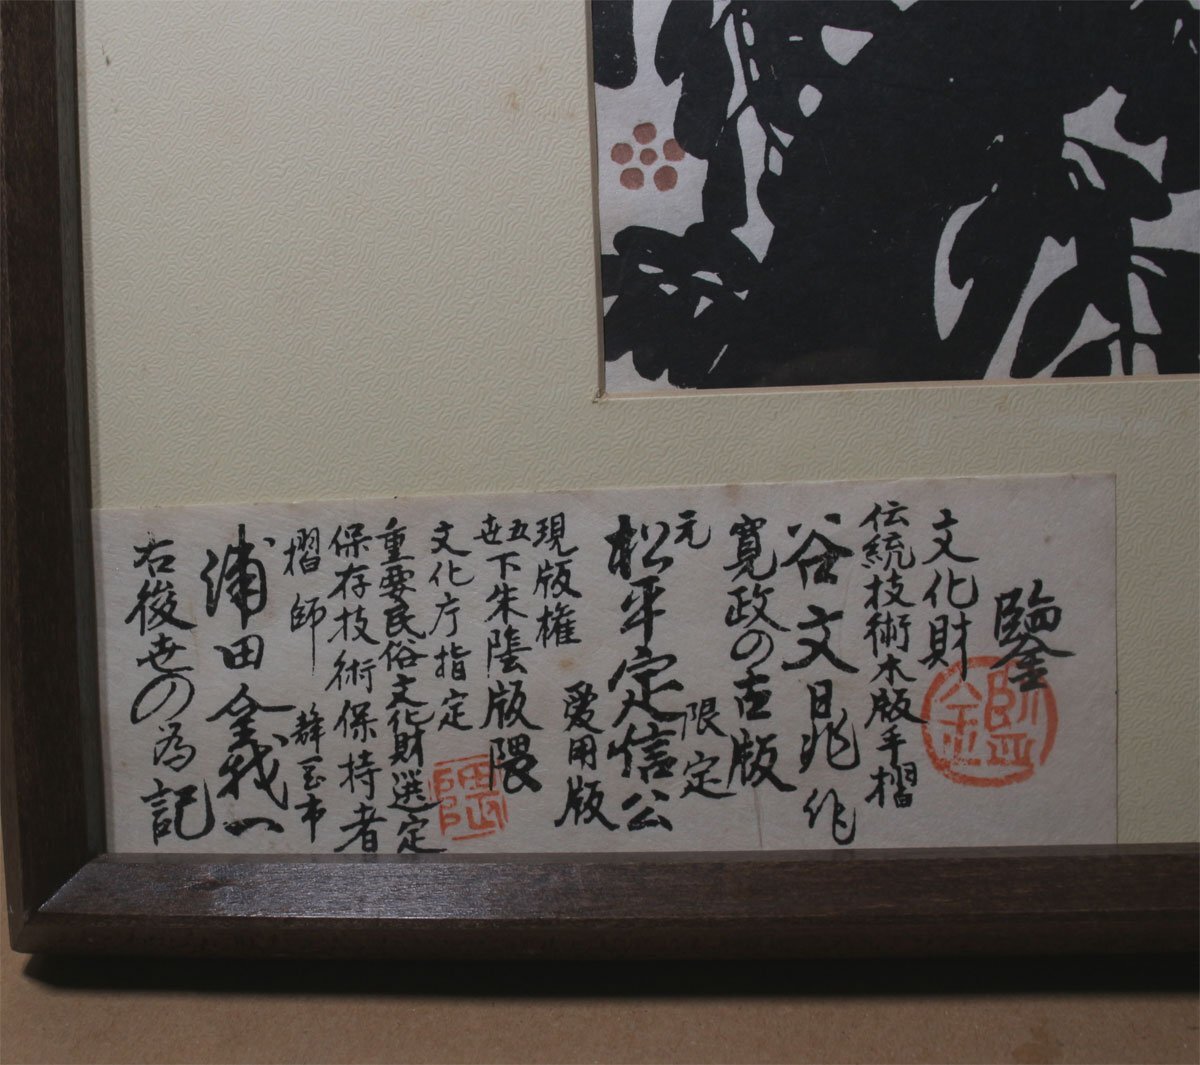 鑒
鑑
文化財
伝統技術木版手摺
谷文晁作
寛政の古版
限定
元
松平定信公
愛用版
現版権
五世
下朱陰版隈
文化庁指定
重要民俗文化財選定
保存技術保持者
摺師
浦田
右後世の為
記